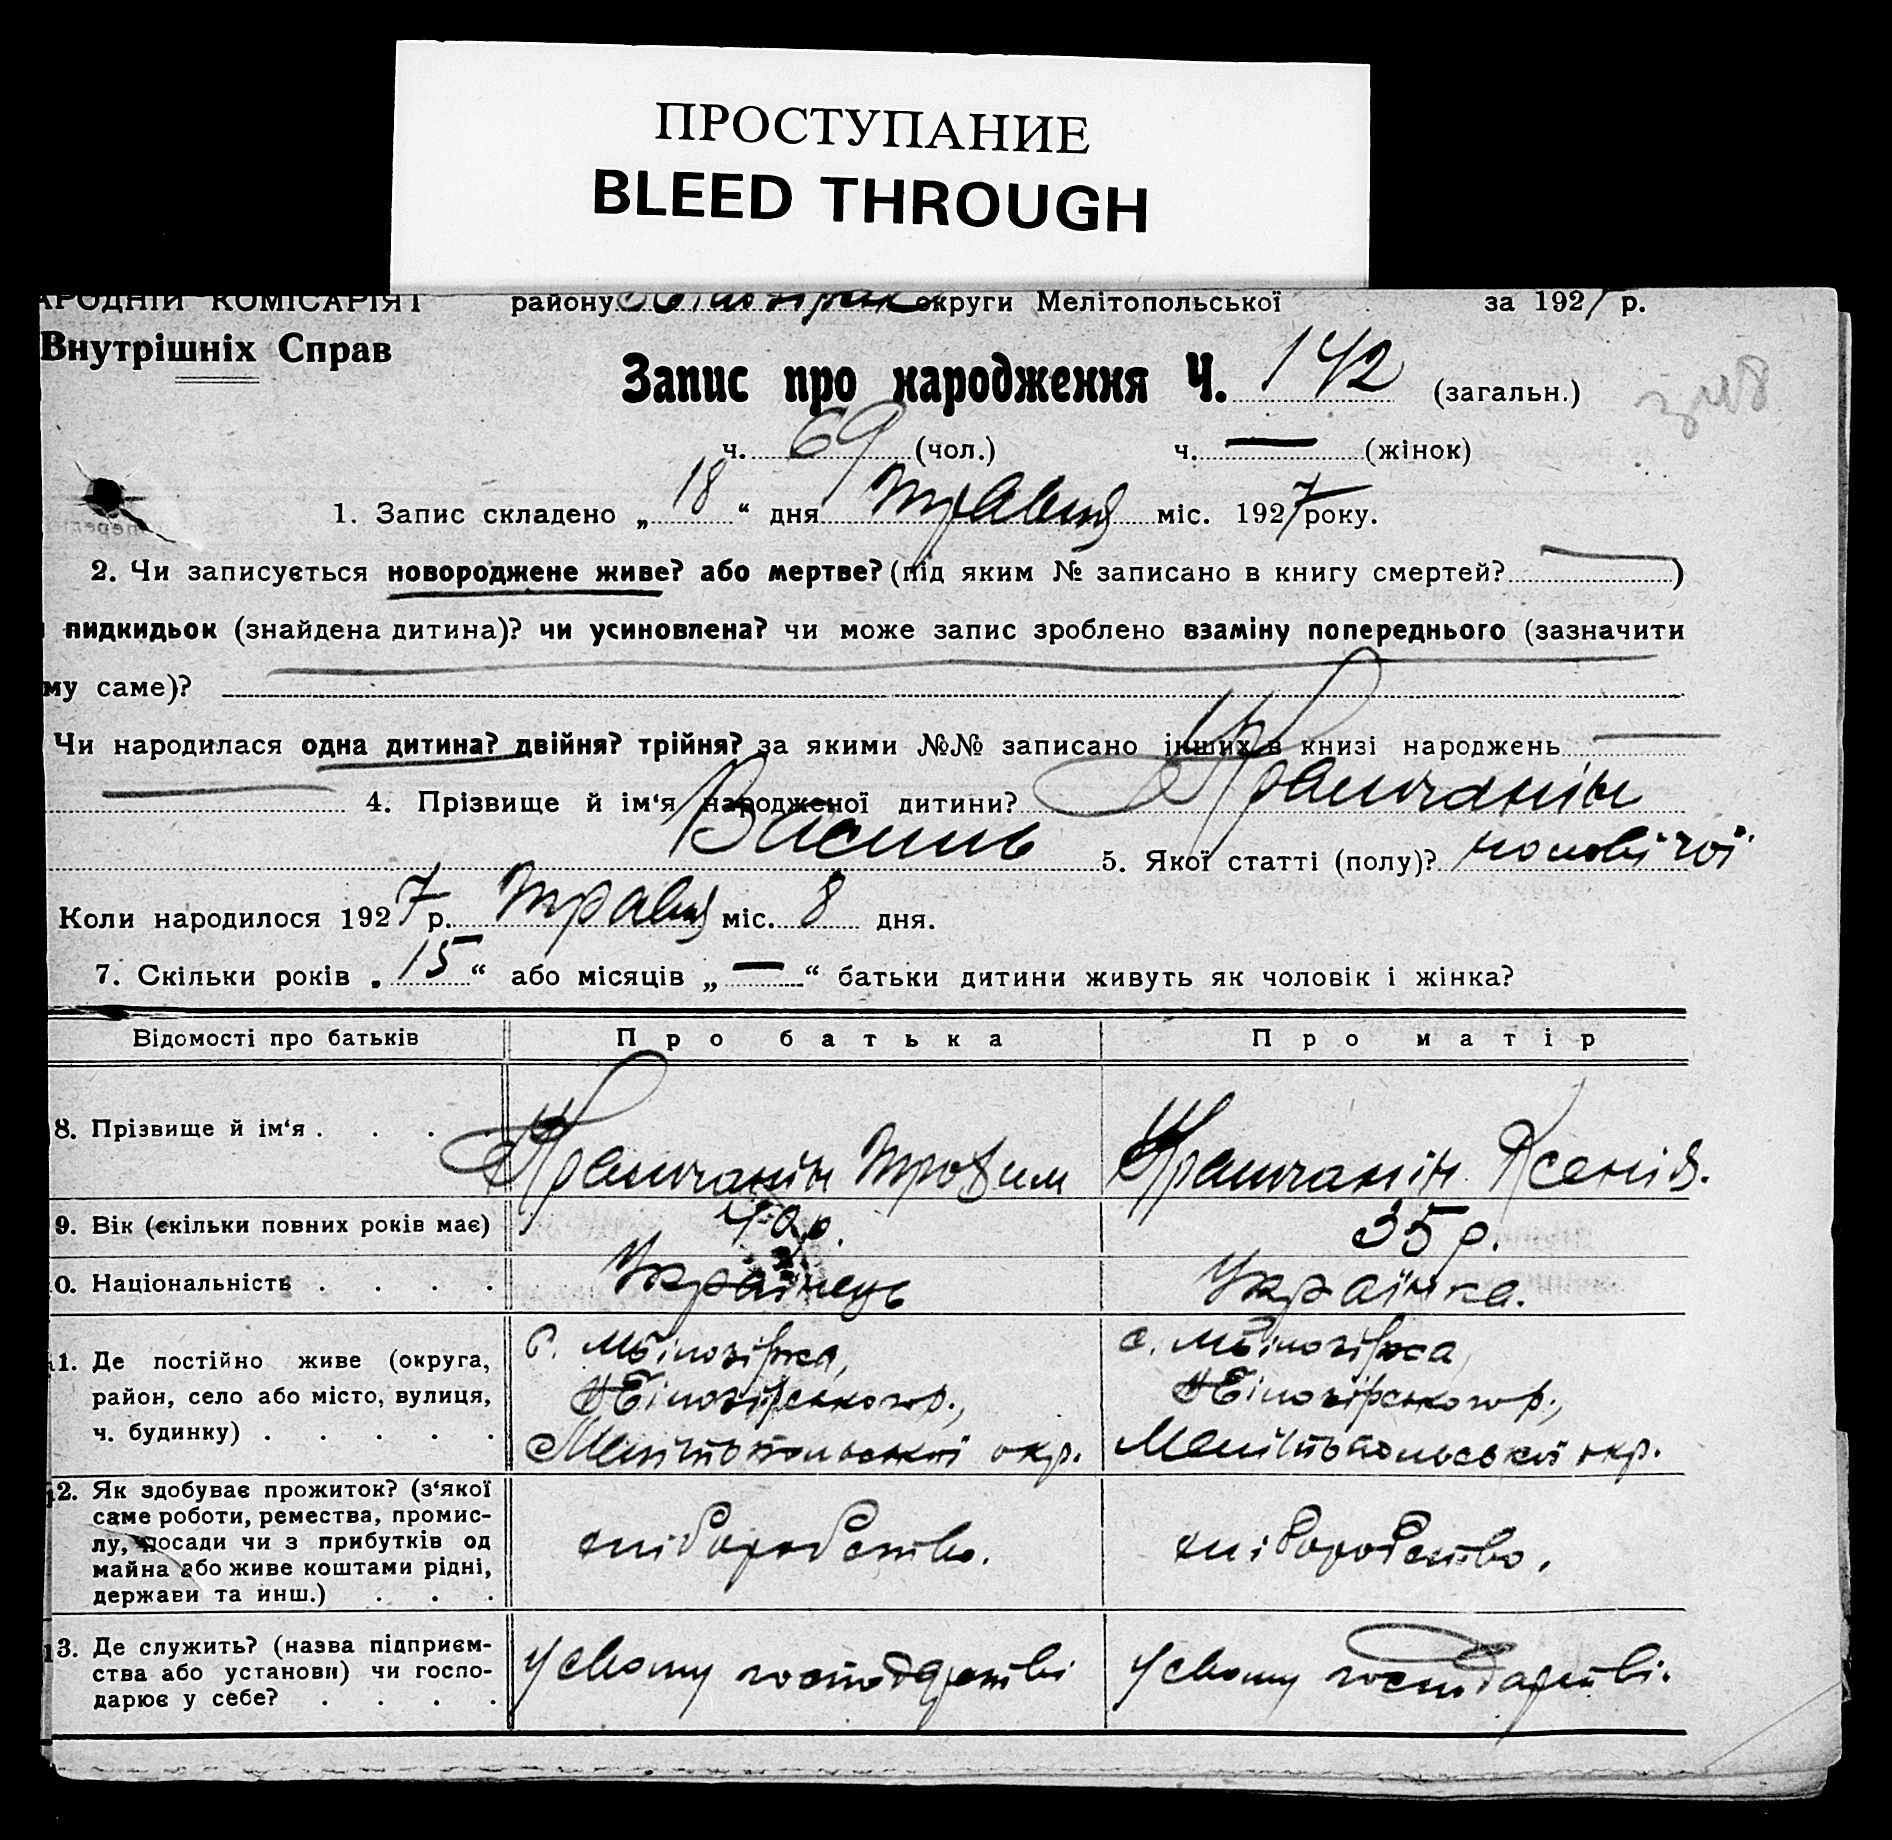 ПРОСТУПАНИЕ
BLEED THROUGH
АРОДНІЙ КОМІСАРІЯТ району округи Мелітопольської за 1927 р.
Внутрішніх Справ
Запис про народження Ч. 142 (загальн.)
ч. 69 (чол.) ч. — (жінок)
1. Запис складено „ 18 “ дня травня міс. 1927 року.
2. Чи записується новороджене живе? або мертве? (під яким № записано в книгу смертей? — )
пидкидьок (знайдена дитина)? чи усиновлена? чи може запис зроблено взаміну попереднього (зазначити
му саме)?
Чи народилася одна дитина? двійня? трійня? за якими №№ записано інших в книзі народжень —
— 4. Прізвище й ім‘я народженої дитини? Крамчанін
Василь 5. Якої статті (полу)? чоловічої
Коли народилося 1927 р. травня міс. 8 дня.
7. Скільки років „ 15 “ або місяців „ — “ батьки дитини живуть як чоловік і жінка?
Відомості про батьків Про батька Про матір
8. Прізвище й ім‘я . . . . Крамчанін Трофим Крамчанін Ксенія.
9. Вік (скільки повних років має) 40 р. 35 р.
0. Національність . . . . Українець Українка.
1. Де постійно живе (округа, с. Білозірка, с. Білозірка
район, село або місто, вулиця, Білозірського р., Білозірського р.,
ч. будинку) . . . . . Мелітопольської окр. Мелітопольської окр.
2. Як здобуває прожиток? (з‘якої
саме роботи, ремества, промис-
лу, посади чи з прибутків од хліборобство. хліборобство.
майна або живе коштами рідні,
держави та инш.) . . .
3. Де служить? (назва підприєм-
ства або установи) чи госпо- У свому господарстві У свому господарстві.
дарює у себе? . . . .